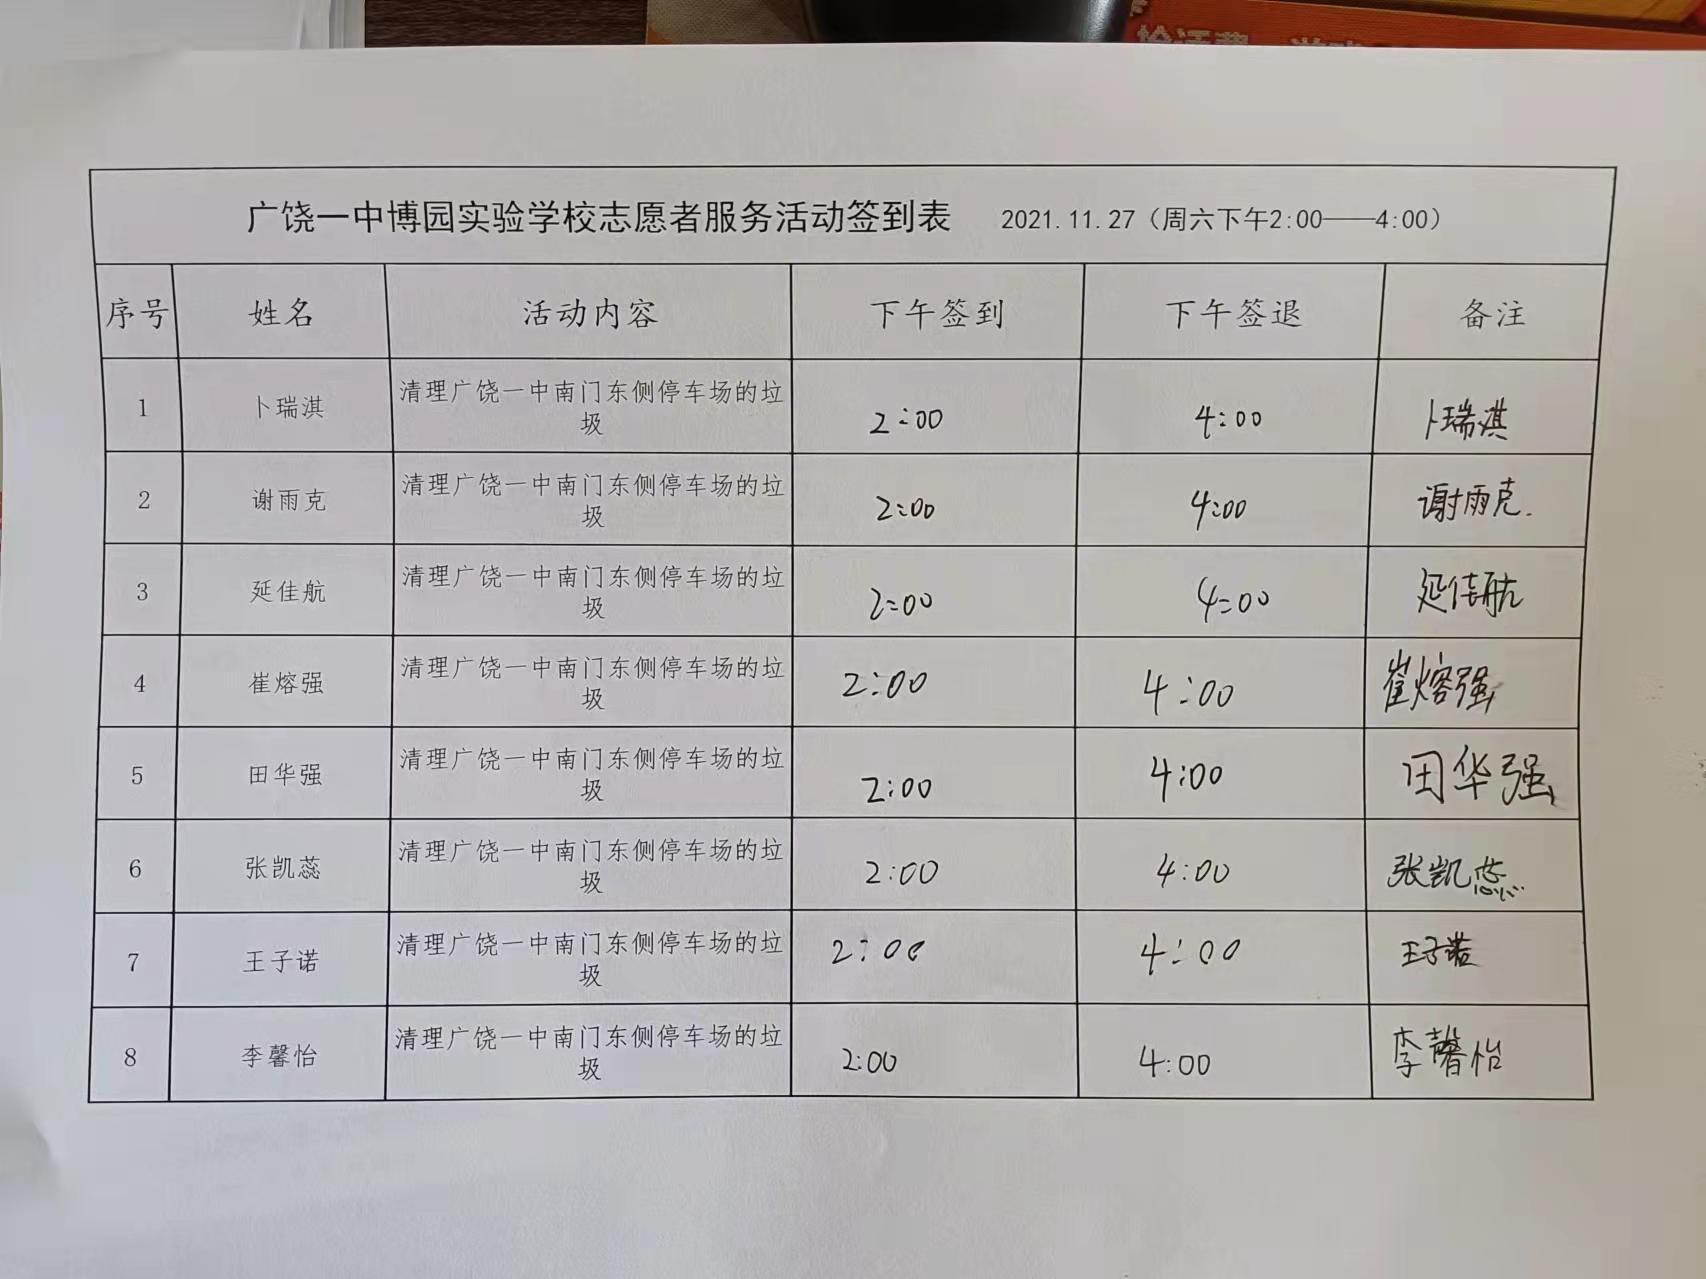 广饶一中博园实验学校志愿者服务活动签到表 2021.11.27（周六下午2:00——4:00）
序号 姓名 活动内容 下午签到 下午签退 备注
1 卜瑞淇 清理广饶一中南门东侧停车场的垃 2:00 4:00 卜瑞淇
圾
2 谢雨克 清理广饶一中南门东侧停车场的垃 2:00 4:00 谢雨克.
圾
3 延佳航 清理广饶一中南门东侧停车场的垃 2:00 4:00 延佳航
圾
4 崔熔强 清理广饶一中南门东侧停车场的垃 2:00 4:00 崔熔强
圾
5 田华强 清理广饶一中南门东侧停车场的垃 2:00 4:00 田华强
圾
6 张凯蕊 清理广饶一中南门东侧停车场的垃 2:00 4:00 张凯蕊
圾
7 王子诺 清理广饶一中南门东侧停车场的垃 2:00 4:00 王子诺
圾
8 李馨怡 清理广饶一中南门东侧停车场的垃 2:00 4:00 李馨怡
圾